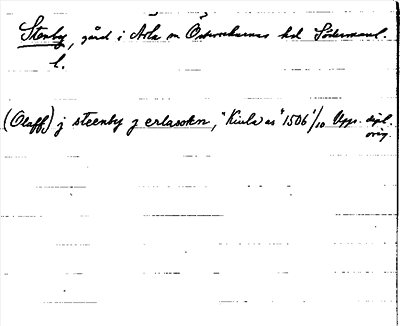 Stenby, gård i Ärla sn Österrekarnes hd Södermanl.
l.
(Olaff) j steenby j erlasokn, "Kiula as" 1506 /10 Upps. dipl.
orig.